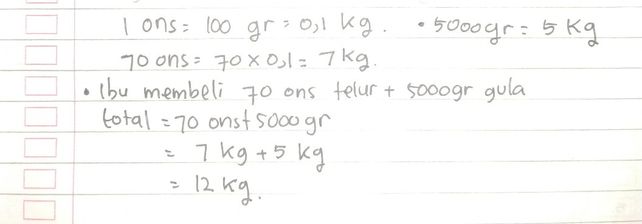 1 ons = 100 gr = 0,1 kg. • 5000gr = 5 Kg
70 ons = 70 x 0,1 = 7 kg.
• Ibu membeli 70 ons telur + 5000gr gula
total = 70 ons + 5000 gr
= 7 kg + 5 kg
= 12 kg.